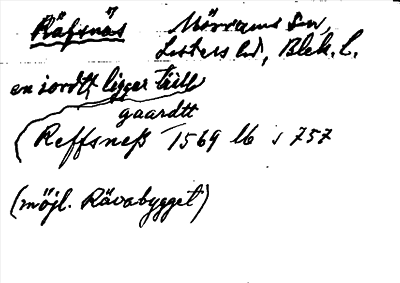 Räfsnäs Mörrums sn
Listers hd, Blek. l.
en jordtt ligger till
gaardtt
Reffsneß 1569 lb s 757
(möjl. Rävabygget)